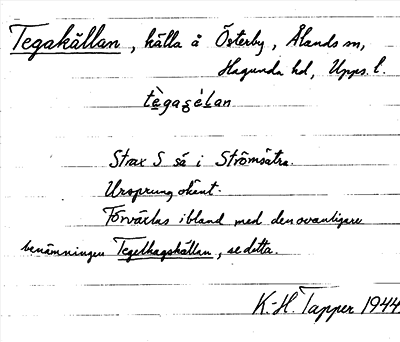 Tegakällan, källa å Österby, Ålands sn,
Hagunda hd, Upps. l.
Strax S så i Strömsätra.
Ursprung okänt.
Förväxlas ibland med den ovanligare
benämningen Tegelhagskällan, se detta.
K.-H. Tapper 1944